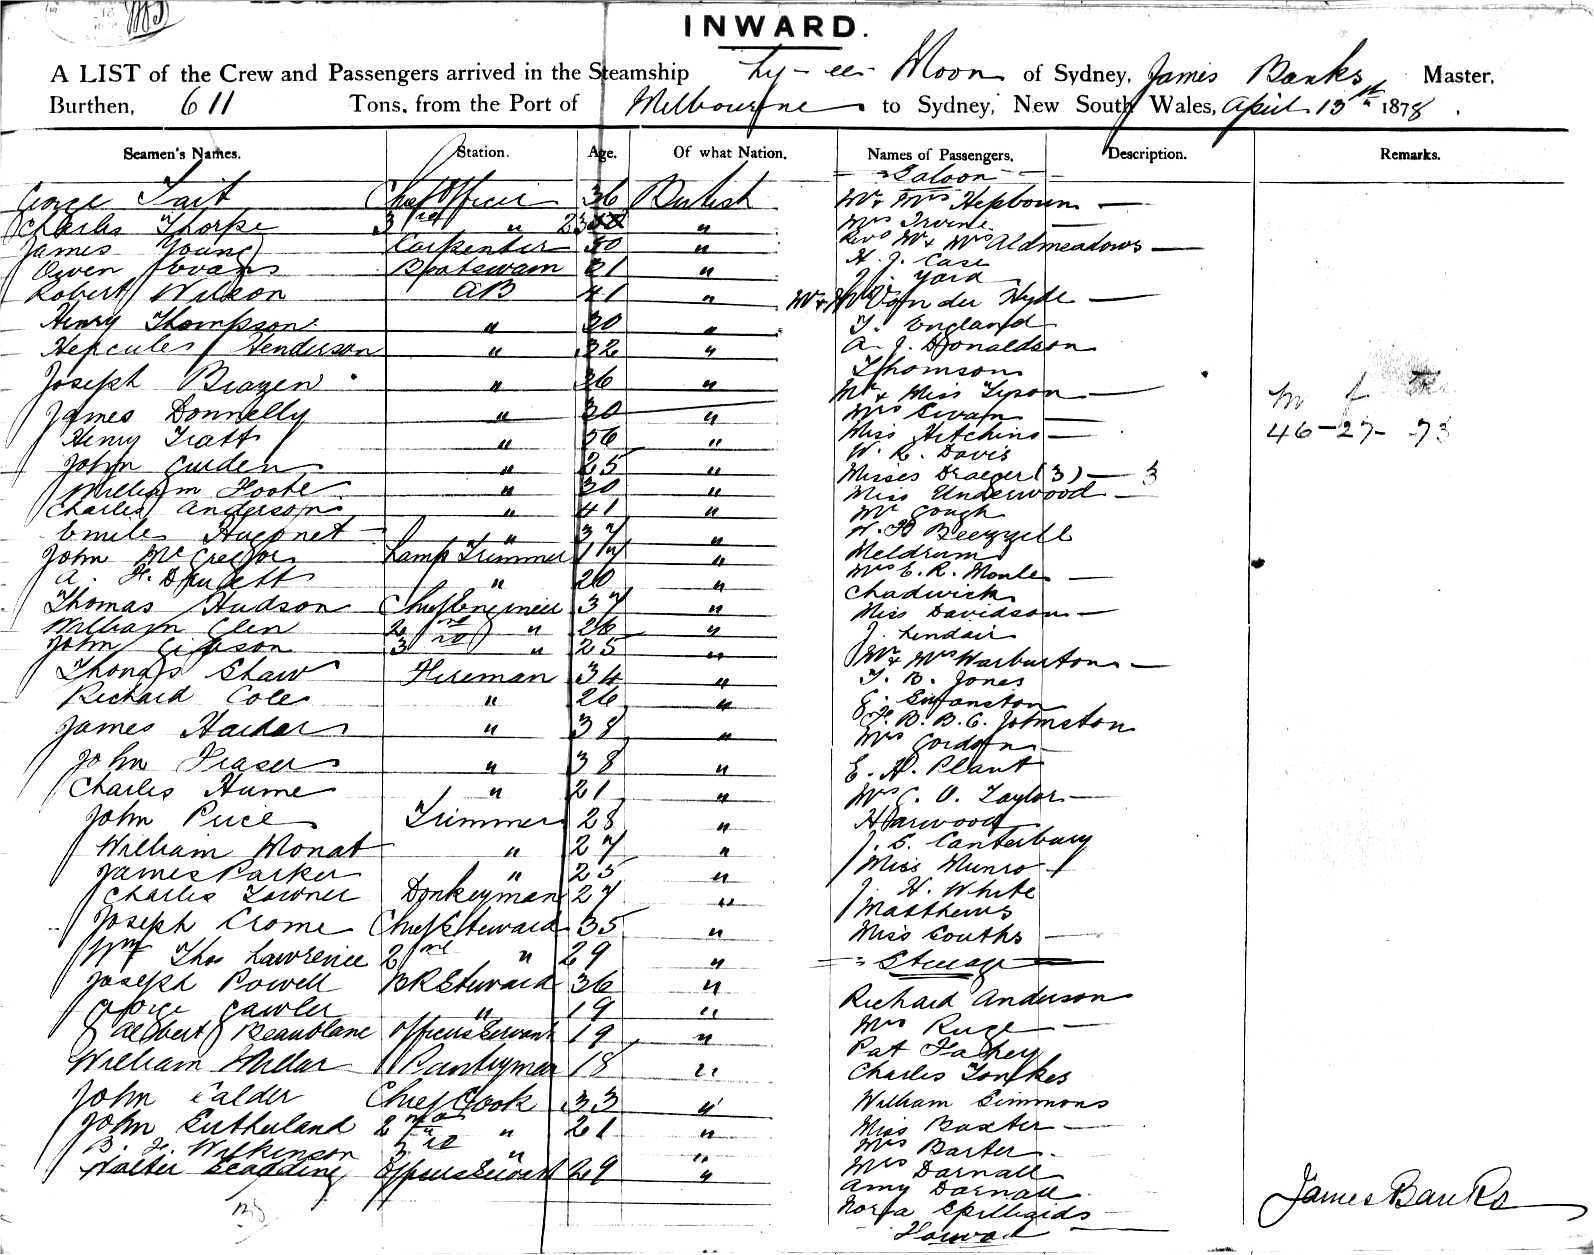 INWARD.
A LIST of the Crew and Passengers arrived in the Steamship Ly-ee-Moon of Sydney, James Banks Master,
Burthen, 611 Tons, from the Port of Melbourne to Sydney, New South Wales, April 13th 1878.
Seamen's Names. Station. Age. Of what Nation. Names of Passengers. Description. Remarks.
Saloon
George Tait Chief Officer 36 British Mr & Mrs Hepburn —
Charles Thorpe 3rd " 23 " Mrs Irvine —
James Young Carpenter 50 " Revd Mr & Mrs Aldmeadows —
Owen Evans Boatswain " H. J. Case
Yard
Robert Wilson AB 41 " Mr & Mrs Van der Hyde —
Henry Thompson " 30 " T. England
Hercules Henderson " 32 " A. J. Donaldson
Thomson
Joseph Brazen " 36 " Mr & Miss Tyson —
James Donnelly " 30 " Mrs Civain —
Henry Tratt " 56 " Miss Hitchins —
W. R. Davis
John Curden " 25 " Misses Draeger (3) — 3
William Foote " 30 " Miss Underwood —
Charles Anderson " 41 " Mr Gough
Emile Hugonet " 37 " Beezzell
John McGregor Lamp Trimmer 17 " Meldrum
A. H. " 20 " Mrs E. R. Monle —
Chadwick
Thomas Hudson Chief Engineer 37 " Miss Davidson —
William Glen 2nd " 26 " J. Lendair
John Gibson 3rd " 25 "
Mr & Mrs Warburton —
Thomas Shaw Fireman 34 " T. B. Jones
Richard Cole " 26 " Swanston
James Harker " 38 " B. B. C. Johnston
Mrs Gordon —
John Fraser " 38 " E. A. Plant
Charles Hume " 21 " Mrs C. O. Taylor —
John Price Trimmer 28 " Harwood
William Monat " 27 " J. C. Canterbury
James Parker " 25 " Miss Munro
Charles Towner Donkeyman 27 " J. H. White
Matthews
Joseph Crome Chief Steward 35 " Miss Couths —
Wm Thos Lawrence 2nd " 29 " Steerage
Joseph Powell BR Steward 36 " Richard Anderson
George Gawler " 19 " Mrs Ruge —
Albert Beaublanc Officers Servant 19 " Pat Fahey
William Millar Pantryman 18 " Charles Tonkes
John Calder Chief Cook 33 " William Simmons
John Sutherland 2nd " 21 " Miss Baxter —
B. J. Wilkinson 3rd " " Mrs Barter
Walter Scadding Officers Servant 29 " Mrs Darnall
Amy Darnall
Nora Spilliaids —
m f
46 - 27 - 73
James Banks